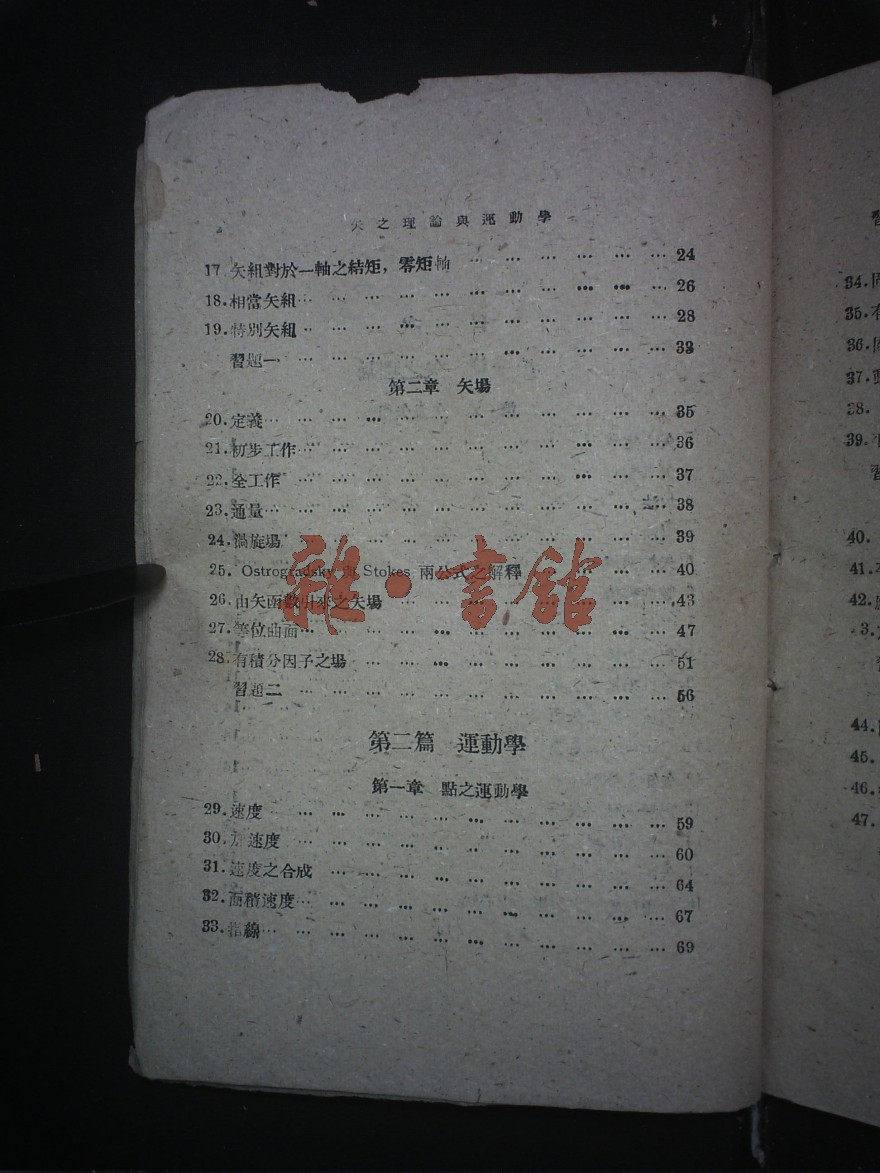 矢之理論與運動學
17.矢組對於一軸之結矩，零矩軸 … … … … … … 24
18.相當矢組… … … … … … … … … … 26
19.特別矢組 … … … … … … … … … … 28
習題一 … … … … … … … … … … 33
第二章 矢場
20.定義… … … … … … … … … … … 35
21.初步工作… … … … … … … … … … 36
22.全工作 … … … … … … … … … … 37
23.通量… … … … … … … … … … … 38
24.渦旋場 … … … … … … … … … … 39
25. Ostrogradsky 與 Stokes 兩公式之解釋 … … … … 40
26.由矢函數引來之矢場 … … … … … … … … 43
27.等位曲面… … … … … … … … … … 47
28.有積分因子之場 … … … … … … … … … 51
習題二 … … … … … … … … … … 56
第二篇 運動學
第一章 點之運動學
29.速度 … … … … … … … … … … … 59
30.加速度 … … … … … … … … … … 60
31.速度之合成 … … … … … … … … … … 64
32.面積速度… … … … … … … … … … 67
33.指線… … … … … … … … … … … 69
雜·書館
34.
35.
36.
37.
38.
39.
40.
41.
42.
3.
44.
45.
46.
47.